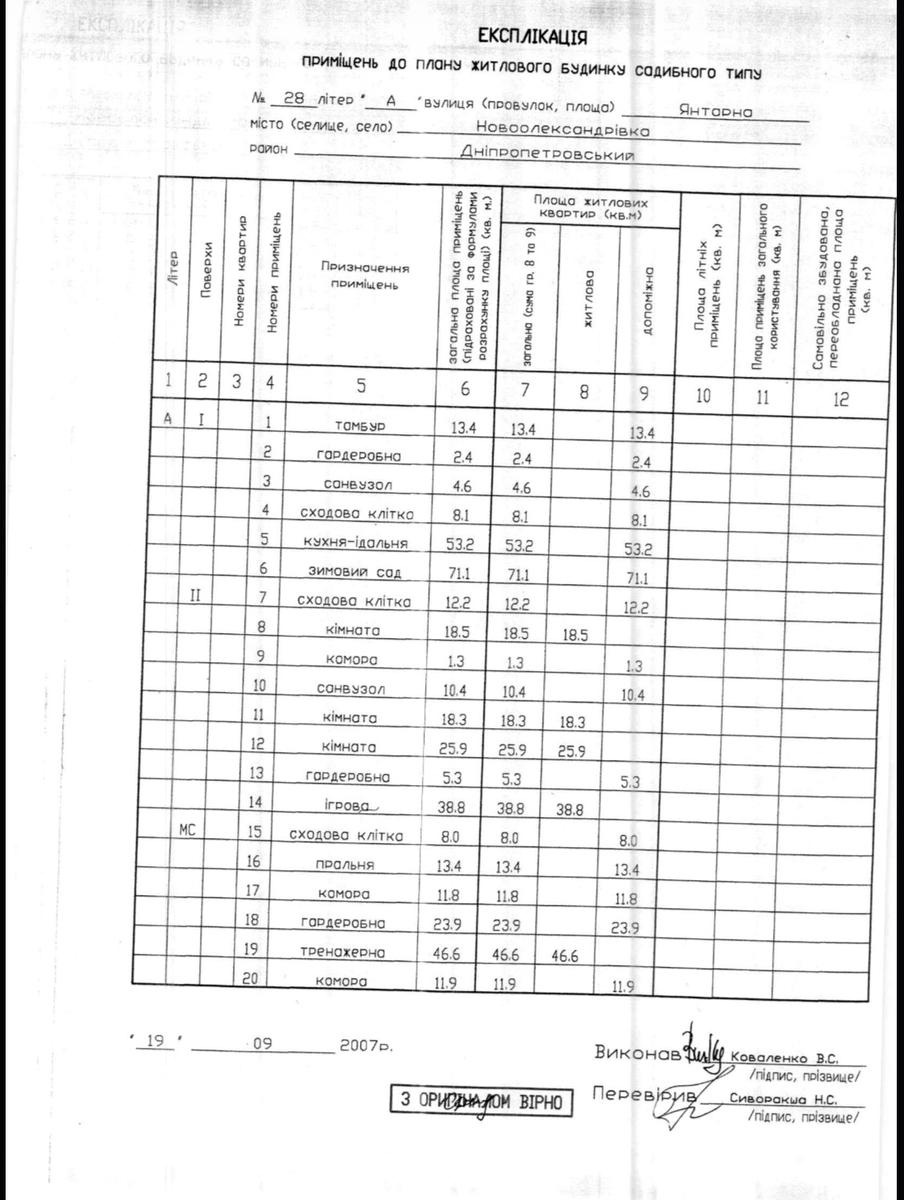 ЕКСПЛІКАЦІЯ
ПРИМІЩЕНЬ ДО ПЛАНУ ЖИТЛОВОГО БУДИНКУ САДИБНОГО ТИПУ
№ 28 літер " А " вулиця (провулок, площа) Янтарна
місто (селище, село) Новоолександрівка
район Дніпропетровський
Літер Поверхи Номери квартир Номери приміщень Призначення приміщень загальна площа приміщень (підраховані за формулами розрахунку площі) (кв. м.) Площа житлових квартир (кв.м) загальна (сума гр. 8 та 9) житлова допоміжна Площа літніх приміщень (кв. м) Площа приміщень загального користування (кв. м) Самовільно збудована, переобладнана площа приміщень (кв. м)
1 2 3 4 5 6 7 8 9 10 11 12
А I 1 тамбур 13.4 13.4 13.4
2 гардеробна 2.4 2.4 2.4
3 санвузол 4.6 4.6 4.6
4 сходова клітка 8.1 8.1 8.1
5 кухня-їдальня 53.2 53.2 53.2
6 зимовий сад 71.1 71.1 71.1
II 7 сходова клітка 12.2 12.2 12.2
8 кімната 18.5 18.5 18.5
9 комора 1.3 1.3 1.3
10 санвузол 10.4 10.4 10.4
11 кімната 18.3 18.3 18.3
12 кімната 25.9 25.9 25.9
13 гардеробна 5.3 5.3 5.3
14 ігрова 38.8 38.8 38.8
МС 15 сходова клітка 8.0 8.0 8.0
16 пральня 13.4 13.4 13.4
17 комора 11.8 11.8 11.8
18 гардеробна 23.9 23.9 23.9
19 тренажерна 46.6 46.6 46.6
20 комора 11.9 11.9 11.9
" 19 " 09 2007р.
Виконав Коваленко В.С.
/підпис, прізвище/
Перевірив Сиворакша Н.С.
/підпис, прізвище/
З ОРИГІНАЛОМ ВІРНО